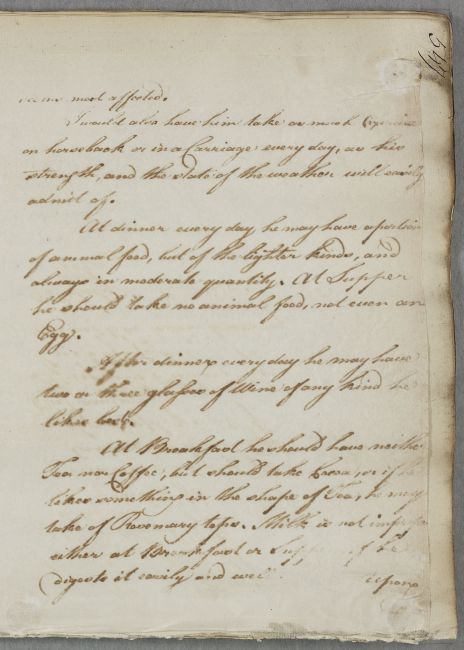 449
most affected.
I would also have him take as much Exercise
on horseback or in a Carriage every day, as his
strength, and the state of the weather will easily
admit of.
At dinner every day he may have a portion
of animal food, but of the lighter kinds, and
always in moderate quantity. At Supper
he should take no animal food, not even an
Egg.
After dinner every day he may have
two or three glasses of Wine of any kind he
likes best.
At Breakfast he should have neither
Tea nor Coffee, but should take Cocoa, or if he
likes something in the shape of Tea, he may
take of Rosemary tops. Milk is not improper
either at Breakfast or Supper if he
digests it easily and well.